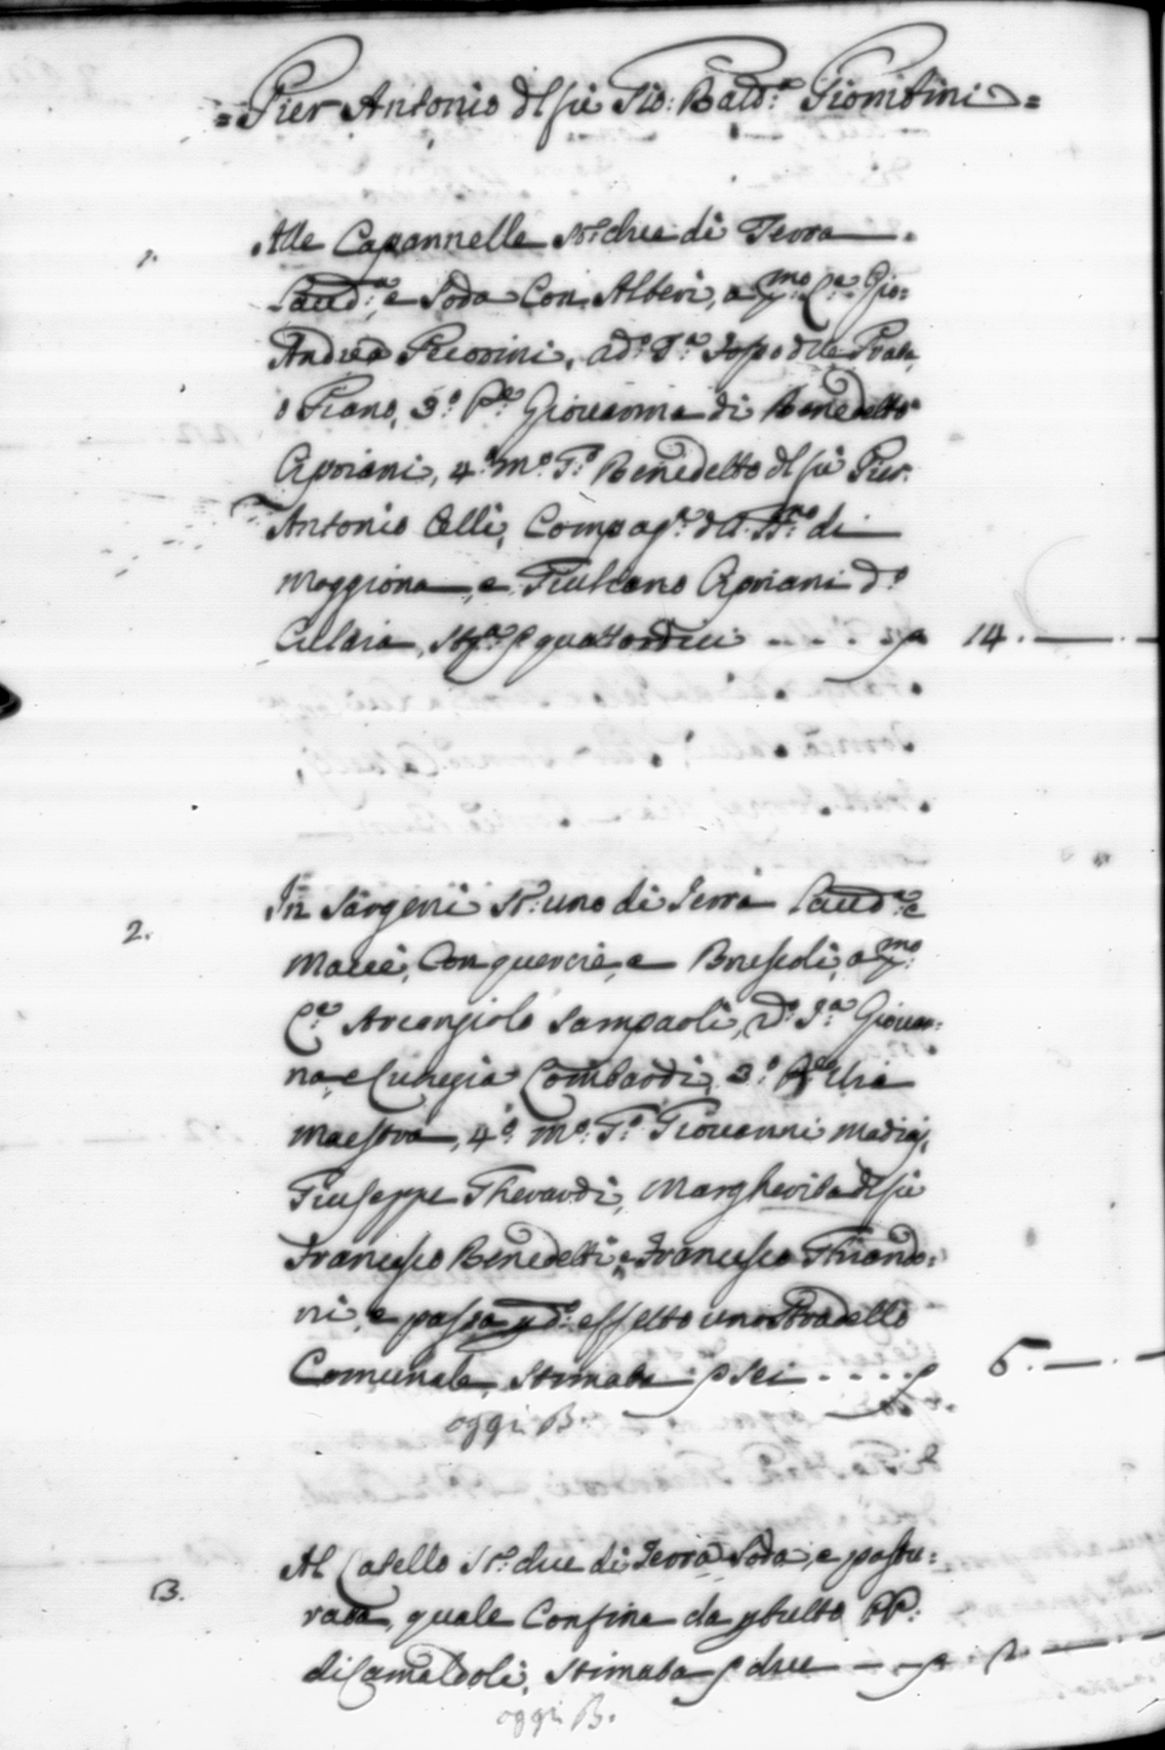 = Pier Antonio d'l fu Gio: Bald.ª Giombini =
1. Alle Capannelle St.ª due di Terra
Laud.ª e Soda Con Alberi, a p.mo L.ª Gio=
Andrea ad.º T.ª Fosso d'lle Prata,
o Piano, 3.º P.ª Giovanna di Benedetto
Cipriani, 4.º m.º T.º Benedetto d'l fu Pier
Antonio Celli, Compag.ª d'l di
Moggiona, e Giuliano Cipriani d.º
stim.ª p quattordici - - - - 14. — . —
2. In Sargeni St.º uno di Terra Laud.ª e
Macch, Con quercie, e Bruscoli, a p.mo
L.ª Arcangiolo Sampaoli, 2.º T.ª Giovan=
na, e Lucrezia Lombardi, 3.º
Maestra, 4.º m.º T.º Giovanni
Giuseppe Gherardi, Margherita d'l fu
Francesco Benedetti, e Francesco
ni, e passa p d.º effetto uno Stradello
Comunale, stimata p sei . . . . 6. — . —
oggi B.
3. Al Casello St.ª due di Terra Soda, e pastu=
rata, quale Confina da p tutto PP:
di Camaldoli, stimata p due — — 2. — . —
oggi B.